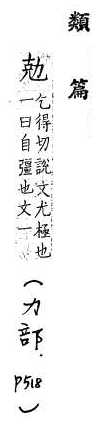 類篇
勀
乞得切說文尤極也
一曰自彊也文一
(力部.
P518)